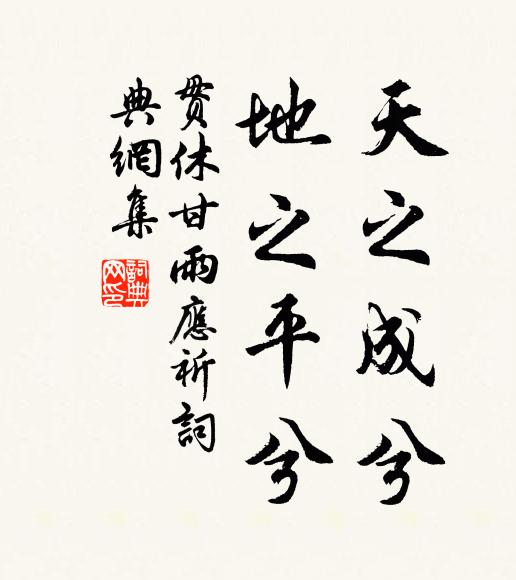 天之成兮
地之平兮
貫休甘雨應祈詞
典網集
詞典
网印